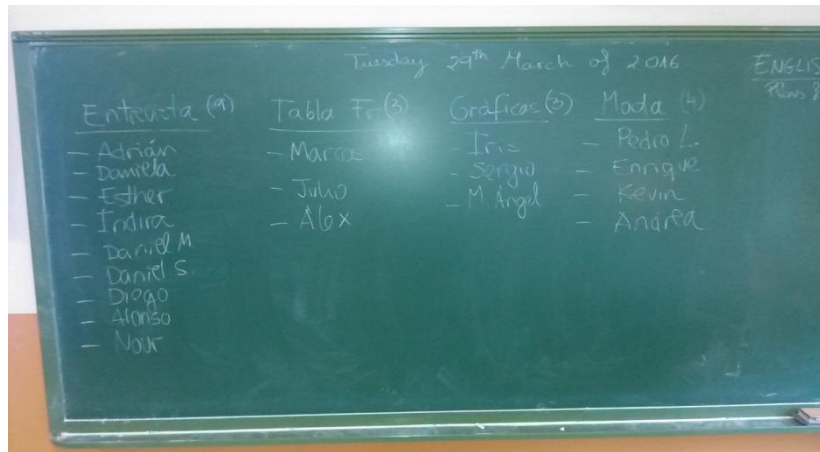 Tuesday 29th March of 2016
ENGLIS
Entrevista (9)
- Adrián
- Daniela
- Esther
- Indira
- Daniel M
- Daniel S.
- Diego
- Alonso
- Nour
Tabla Fr (3)
- Marcos
- Julio
- Álex
Gráficas (3)
- Iris
- Sergio
- M. Ángel
Moda (4)
- Pedro L.
- Enrique
- Kevin
- Andrea